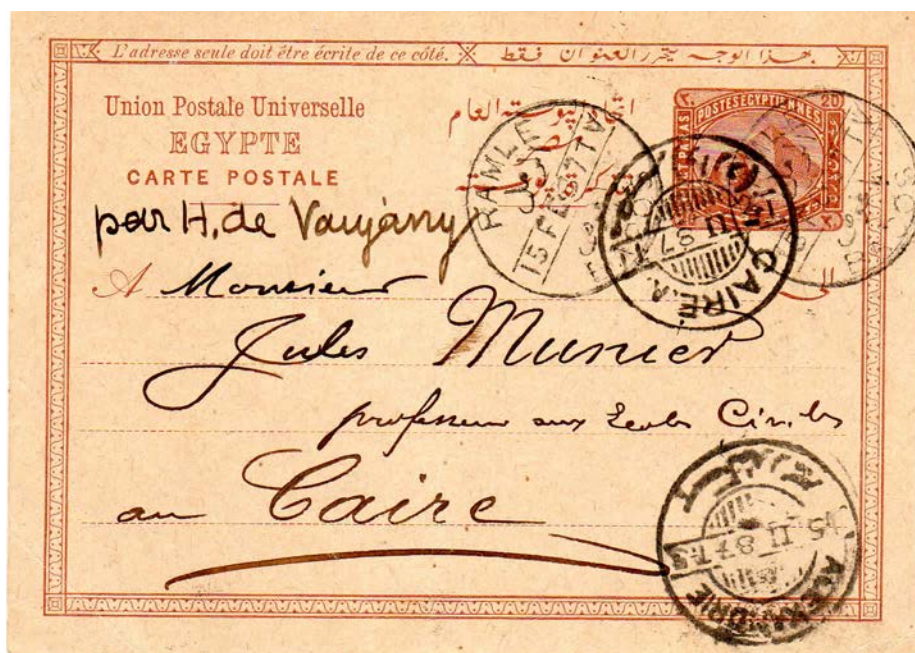 L'adresse seule doit être écrite de ce côté. هذا الوجه يتحرر العنوان فقط
Union Postale Universelle
EGYPTE
CARTE POSTALE
اتحاد البوستة العام
POSTES EGYPTIENNES
20
par H. de Vaujany
RAMLE
15 FE 87
CAIRE.A.
II 87
A Monsieur
Jules Munier
professeur aux Ecoles Civiles
au Caire
15 II 87
ALEXANDRIE